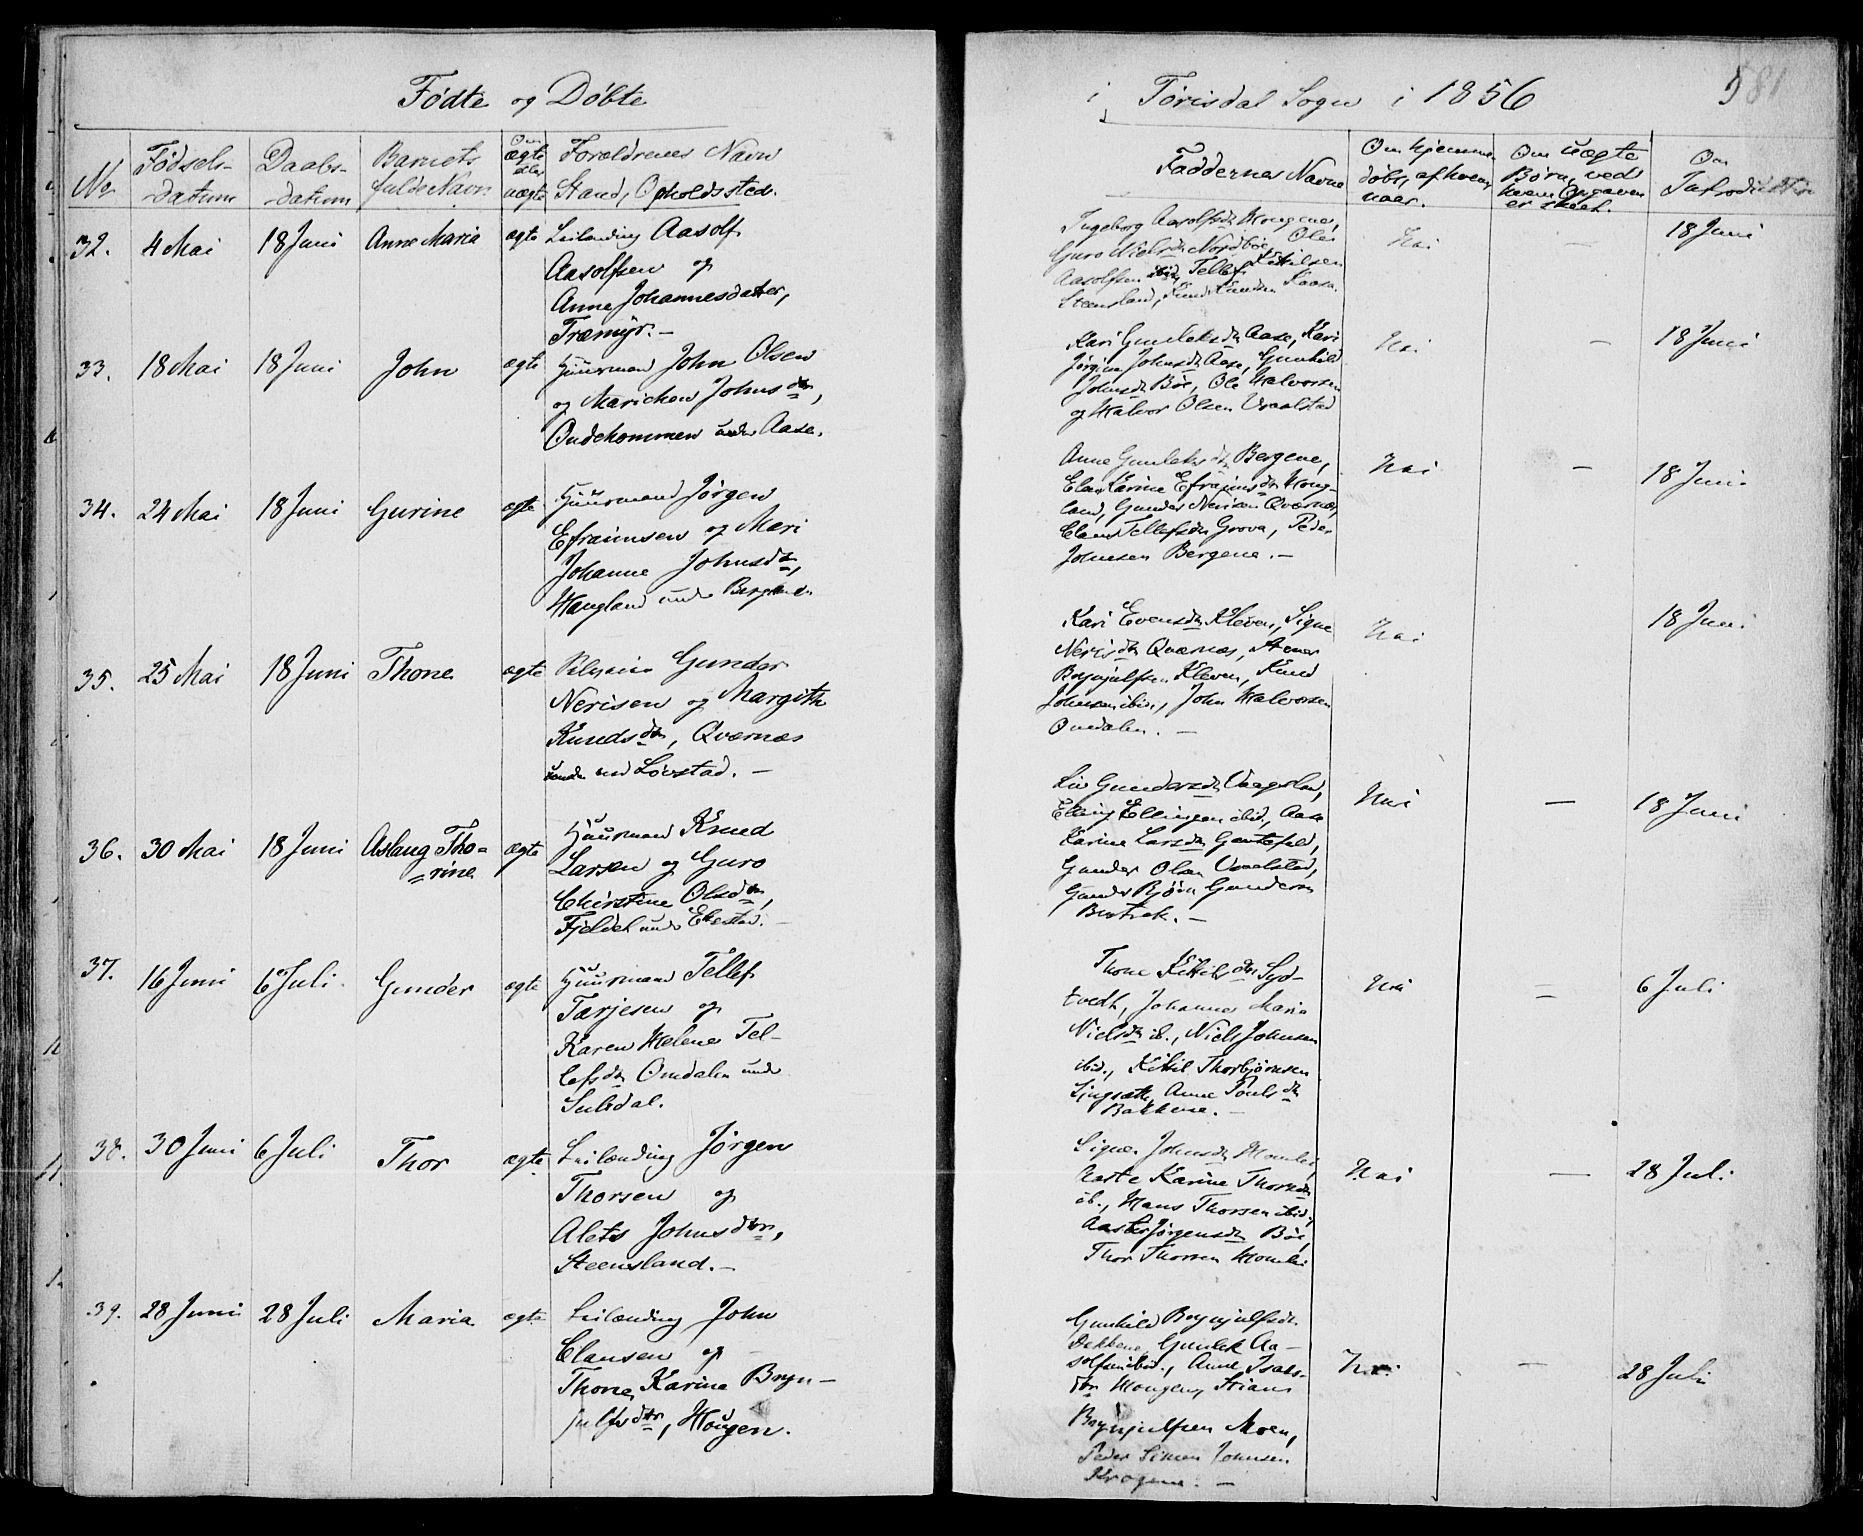 Fødte og Døbte
i Tørisdal Sogn i 1856
581
No
Fødsels-
datum
Daabs-
datum
Barnets
fulde Navn
Om
ægte
eller
uægte
Forældrenes Navn
Stand, Opholdssted.
Faddernes Navne
Om hjemme-
døbt, af hvem,
naar.
Om uægte
Børn, ved
hvem Opgaven
er skeet.
Om
Introduktion
32. 4 Mai 18 Juni Anne Maria ægte Leilænding Aasolf
Aasolfsen og
Anne Johannesdatter,
Træmyr.-
Ingeborg Aasolfsdtr Hougene,
Guro Nielsdtr Nordbøe, Ole
Aasolfsen ibid., Tellef Kittilsen
Steensland, Knud Knudsen Kaasa.
Nei - 18 Juni
33. 18 Mai 18 Juni John ægte Huusmand John Olsen
og Marichen Johnsdtr,
Ondekommen under Aase.
Kari Gunleksdtr Aase, Kari
Jørgine Johnsdtr Aase, Gunhild
Johnsdtr Bøe, Ole Halvorsen
og Halvor Olsen Vraalstad
Nei - 18 Juni
34. 24 Mai 18 Juni Gurine ægte Huusmand Jørgen
Efraimsen og Mari
Johanne Johnsdtr,
Haugland under Bergene.
Anne Gunleksdtr Bergene,
Elen Karine Efraimsdtr Houg-
land, Gunder Nerisen Qværnæs,
Tellefsdtr Grova, Peder
Johnsen Bergene.-
Nei - 18 Juni
35. 25 Mai 18 Juni Thone ægte Gunder
Nerisen og Margith
Knudsdtr, Qværnæs
under Løvstad.-
Kari Evensdtr Kleven, Signe
Nerisdtr Qværnæs, Stener
Brynjulfsen Kleven, Knud
Johnsen ibid., John Halvorsen
Omdalen.-
Nei 18 Juni
36. 30 Mai 18 Juni Aslaug Tho=
=rine ægte Huusmand Knud
Larsen og Guro
Chirstine Olsdtr,
Fjeldet under Ekestad.-
Liv Gundersdtr Vaagsland,
Elling Ellingsen ibid., Aase
Karine Larsdtr Gautefald,
Gunder Olsen Vraalstad,
Gunder Bjørn Gundersen
Nei - 18 Juni
37. 16 Juni 6 Juli Gunder ægte Huusmand Tellef
Tarjesen og
Karen Helene Tel-
lefsdtr Omdalen under
Suledal.
Thone Kittilsdtr Syd-
tvedt, Johanne Maria
Nielsdtr ib., Niels Johnsen
ibid., Kittil Thorbjørnsen
Anne Poulsdtr
Bakkene.-
Nei = 6 Juli
38. 30 Juni 6 Juli Thor ægte Leilænding Jørgen
Thorsen og
Alets Johnsdtr,
Steensland.-
Signe Johnsdtr Homlie,
Aaste Karine Thorsdtr
ib., Hans Thorsen ibid.,
Aaste Jørgensdtr Bøe,
Thor Thorsen Homlie
Nei - 28 Juli
39. 28 Juni 28 Juli Maria ægte Leilænding John
Clausen og
Thone Karine Bryn-
julfsdtr, Hougen.
Gunhild Brynjulfsdtr
Bakkene, Gunlek Aa-
solfsen ibid., Anne Isaks-
dtr Hougen, Stian
Brynjulfsen Moen,
Peder Simon Johnsen
Krogene.-
Nei - 28 Juli